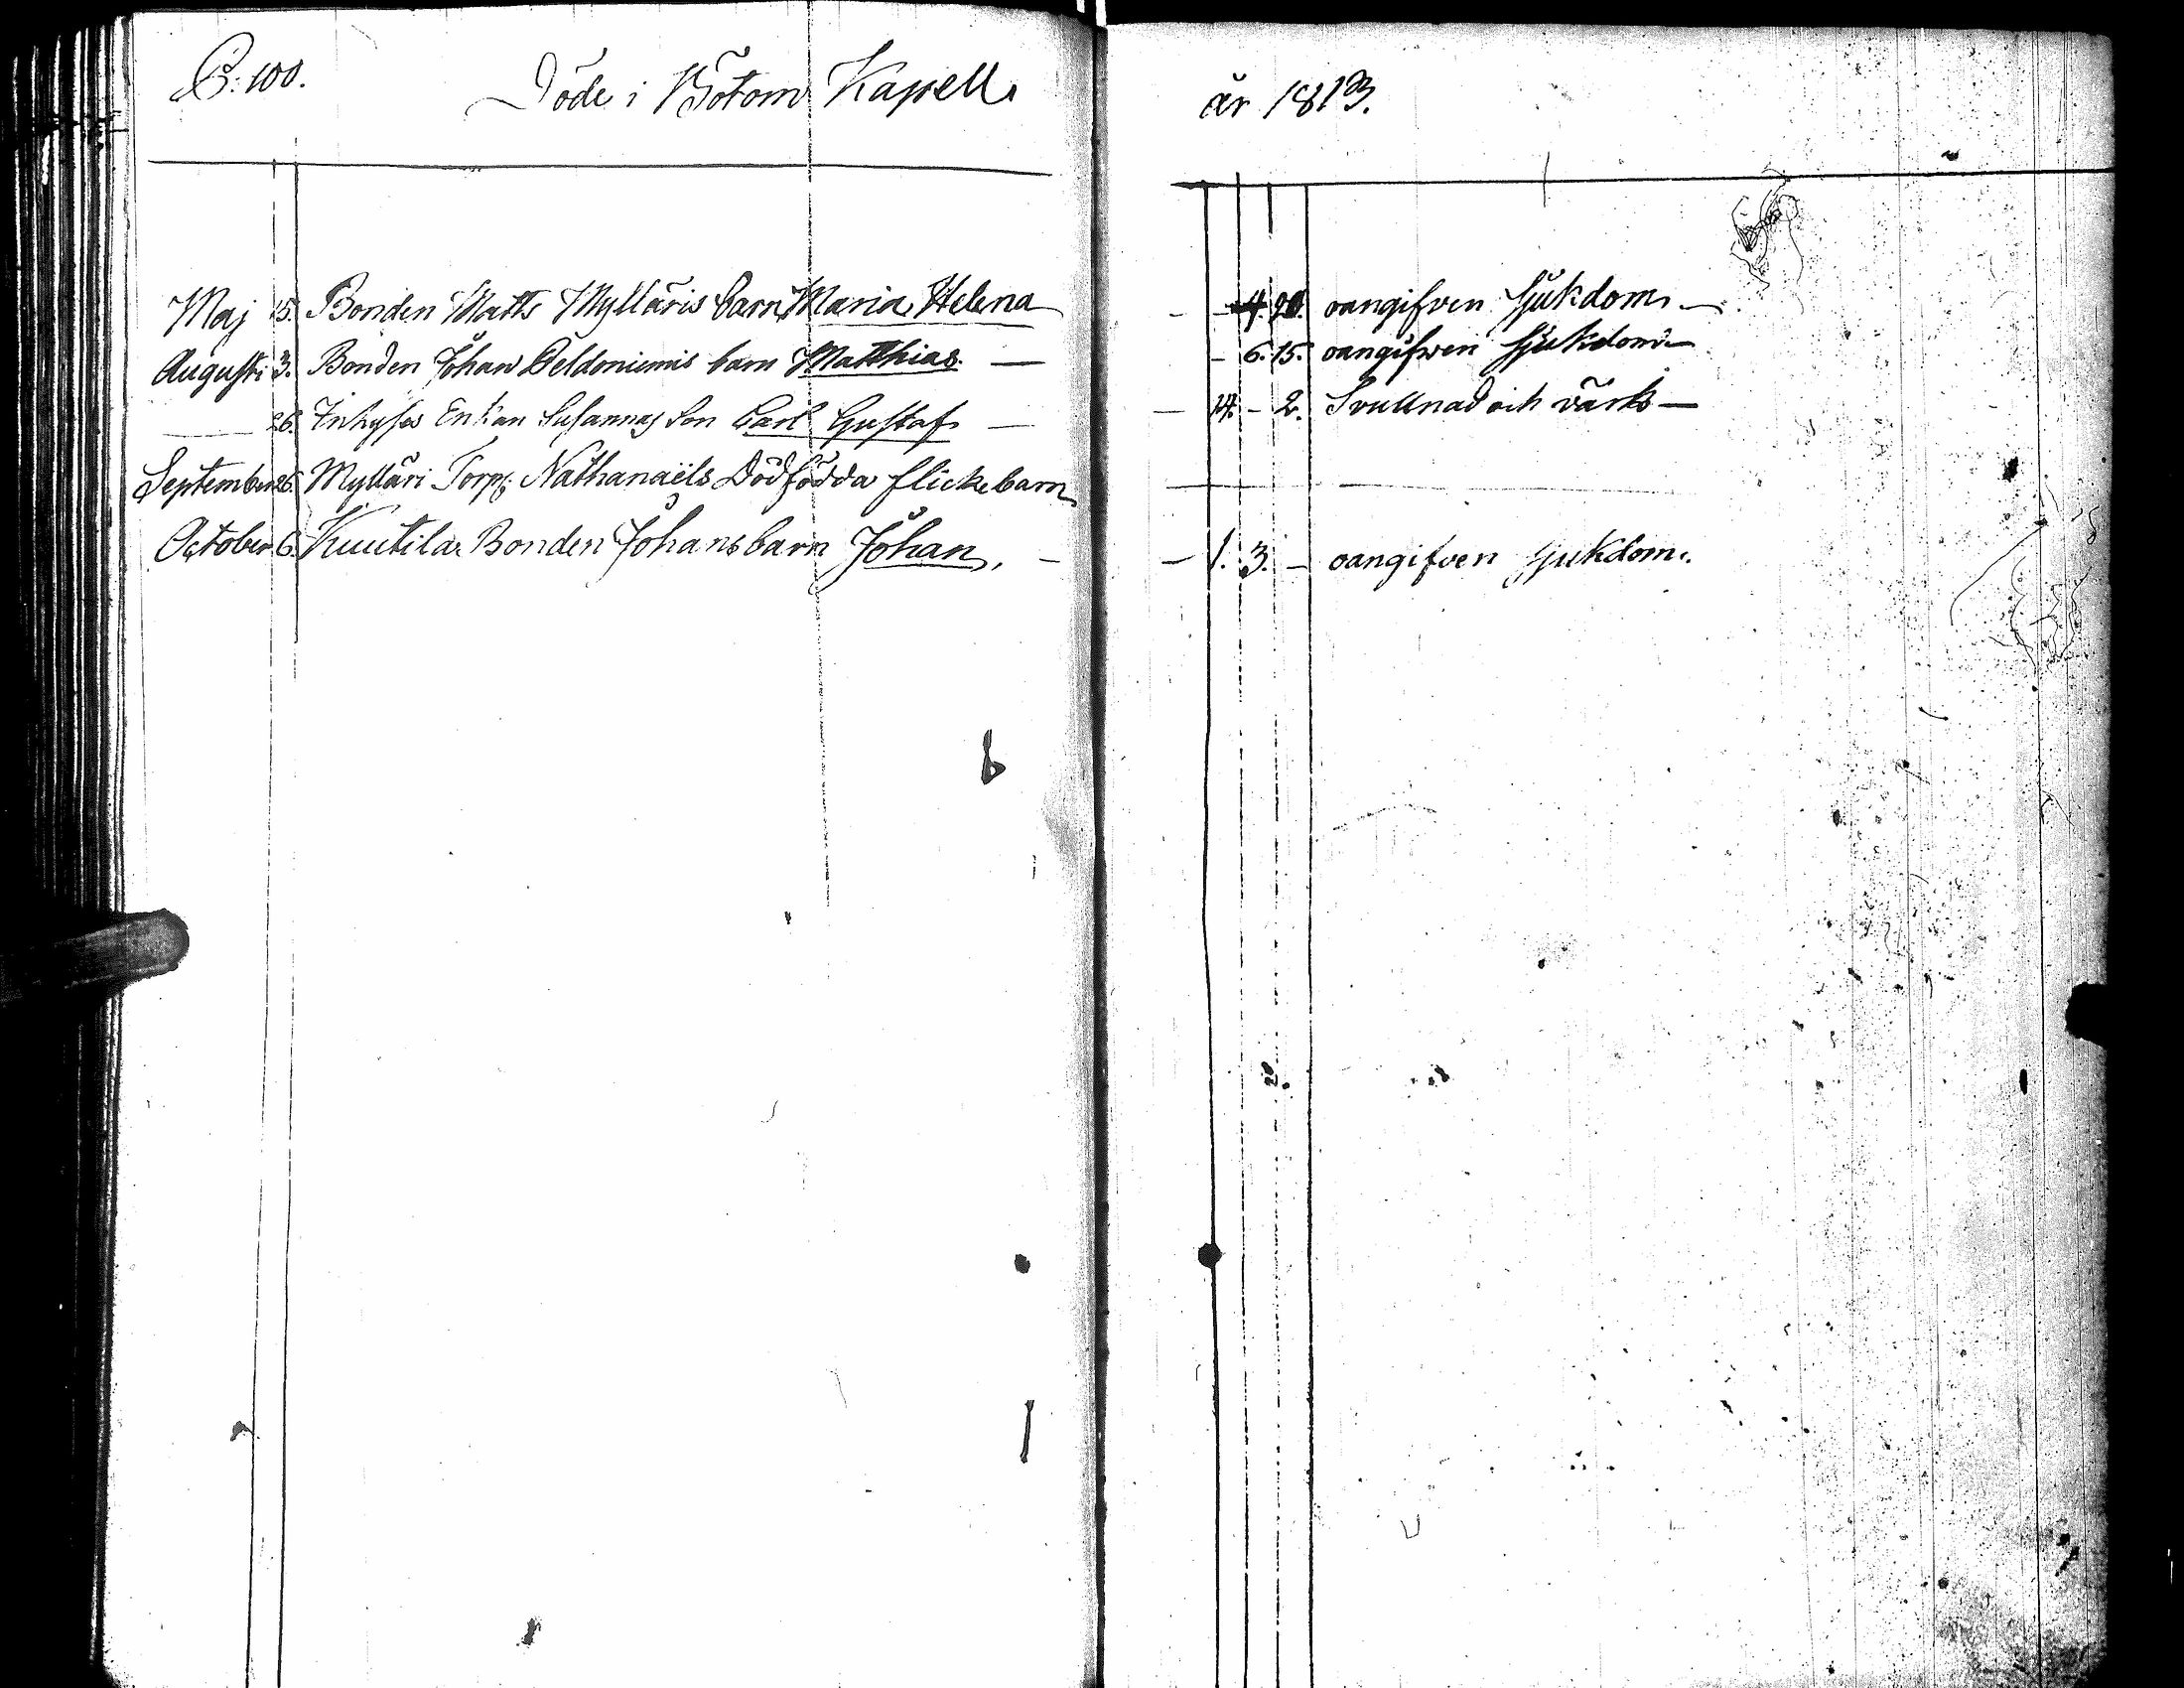 B: 100.
Döde i Bötom Kapell
år 1813.
Maj 15. Bonden Matts Mylläris barn Maria Helena - 4. 20. oangifven Sjukdom. -
Augusti 3. Bonden Johan Peldoniemis barn Matthias. - - 6. 15. oangifven Sjukdom -
- 26. Inhyses Enkan Susannas Son Carl Gustaf - - 14. - 2. Svullnad och värk -
September 26. Mylläri Torp. Nathanaëls Dödfödda flickebarn -
October 6. Kuutila Bonden Johans barn Johan. - - 1. 3. - oangifven Sjukdom.